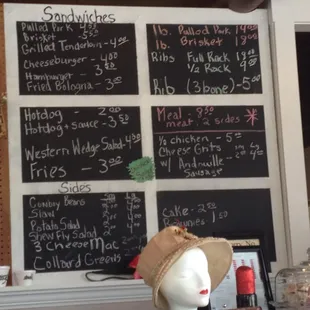 Sandwiches
Pulled Pork 4.50
Brisket - 5.50
Grilled Tenderloin - 4.50
Cheeseburger - 4.00
Hamburger - 3.50
Fried Bologna - 3.50
1 lb. Pulled Pork
1 lb. Brisket
Ribs Full Rack
1/2 Rack
Rib (3 bone) - 5.50
Hotdog - 2.00
Hotdog + Sauce - 3.50
Western Wedge Salad - 4.00
Fries - 3.00
Meal -
meat, 2 sides
1/2 chicken - 5.00
Cheese Grits
w/ Andouille
Sausage
Sides
Cowboy Beans
Slaw
Potato Salad
Shew Fly Salad
3 Cheese Mac
Collard Greens
Cake - 2.50
Brownies